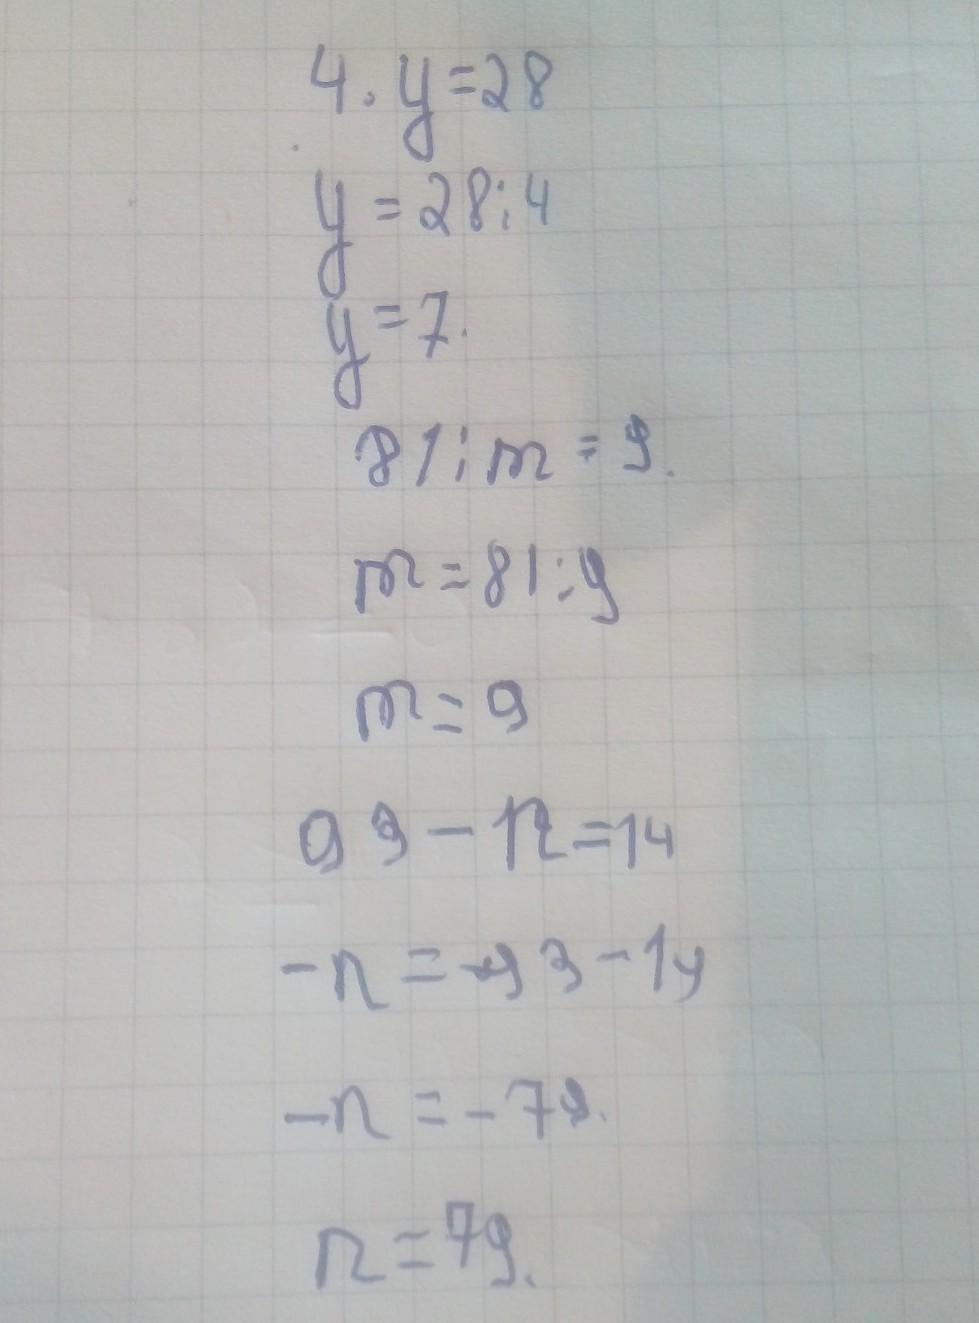 4. y=28
y = 28:4
y=7.
81:m = 9.
m=81:9
m= 9
93-n=14
-n=-93-14
-n=-79.
n=79.